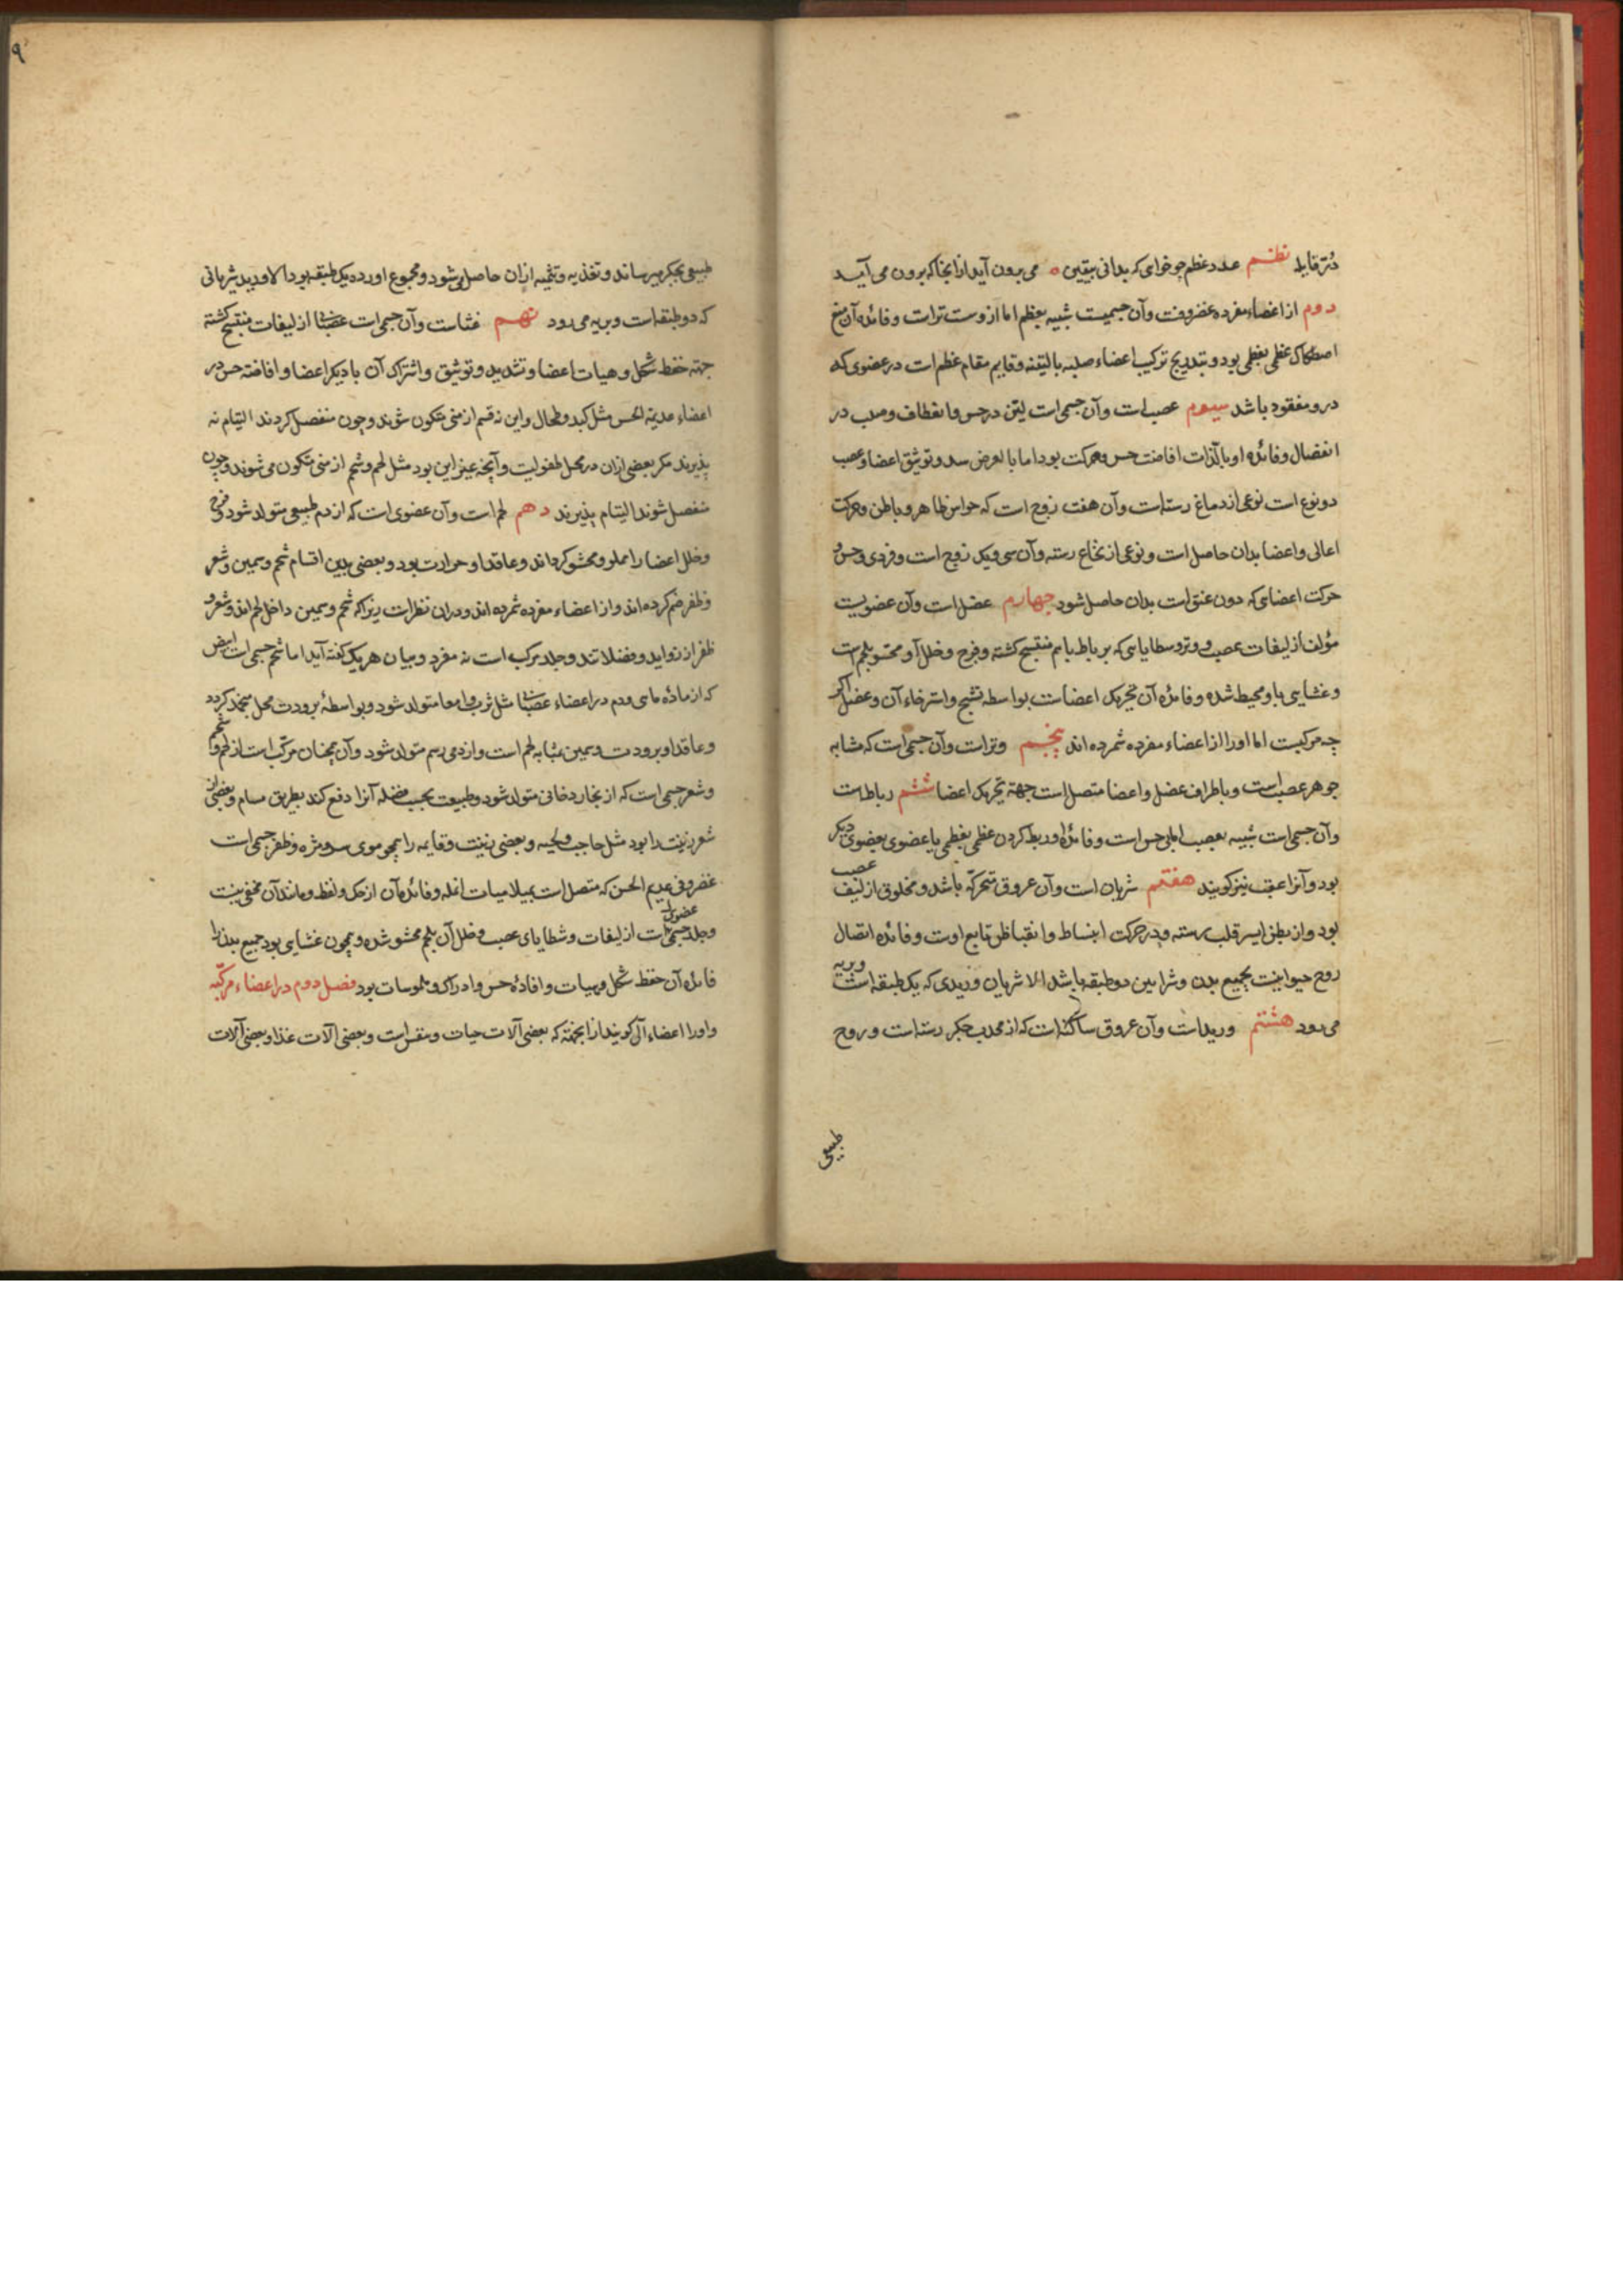 نظم عدد عظم چو خواهی که بدانی بیقین ه می برون آید از انجا که برون می آید
دوم از اعضاء مفرده غضروفست وآن جسمیست شبیه بعظم اما ازوست تراست وفائده آن منع
اصطکاک عظمی بعظمی بود وبتدریج ترکیب اعضاء صلبه بالینه وقایم مقام عظم است در عضوی که
درو مفقود باشد سیوم عصب است وآن جسمی است لین در حس وانعطاف وصلب در
انفصال وفائده او بالذات افاضت حس وحرکت بود اما بالعرض سد وتوثیق اعضا وعصب
دو نوع است نوعی از دماغ رسته است وآن هفت زوج است که حواس ظاهر وباطن وحرکت
اعالی واعضا بدان حاصل است ونوعی از نخاع رسته وآن سی ویک زوج است وفردی وحس و
حرکت اعضای که دون عنق است بدان حاصل شود چهارم عضل است وآن عضویست
مؤلف از لیفات عصب ووتر وسطایای که بر باط باهم منتسج کشته وفرج وخلل آن محشو بلحم است
وغشایی باو محیط شده وفائده آن تحریک اعضاست بواسطه تشنج واسترخاء آن وعضل اکر
چه مرکبست اما اورا از اعضاء مفرده شمرده اند پنجم وتراست وآن جسمی است که مشابه
جوهر عصب است وباطراف عضل واعضا متصل است جهة تحریک اعضا ششم رباط است
وآن جسمی است شبیه بعصب اما بی حس است وفائده او ربط کردن عظمی بعظمی یا عضوی بعضوی دیکر
بود وآنرا عقب نیز کویند هفتم شریان است وآن عروق متحرکه باشد ومخلوق از لیف عصب
بود واز بطن ایسر قلب رسته ودر حرکت انبساط وانقباض تابع اوست وفائده اتصال
روح حیوانیست بجمیع بدن وشرایین دو طبقه باشد الا شریان وریدی که یک طبقه است وبریه
می رود هشتم وریداست وآن عروق ساکنه است که از محدب جکر رسته است وروح
طبیعی
۹
طبیعی بجکر میرساند وتغذیه وتنمیه ازان حاصل شود ومجموع اورده یک طبقه بود الا ورید شریانی
که دو طبقه است وبریه می رود نهم غشاست وآن جسمی است عصبانی از لیفات منتسج کشته
جهة حفظ شکل وهیات اعضا وتشدید وتوثیق واشتراک آن با دیکر اعضا وافاضة حس در
اعضاء عدیمة الحس مثل کبد وطحال واین نه قسم از منی متکون شوند وچون منفصل کردند التیام نه
پذیرند مکر بعضی ازان در محل طفولیت وآنچه غیر این بود مثل لحم وشحم از منی متکون می شوند وچون
منفصل شوند التیام پذیرند دهم لحم است وآن عضوی است که از دم طبیعی متولد شود وفرج
وخلل اعضا را مملو ومحشو کرداند وعاقد او حرارت بود وبعضی بدین اقسام شحم وسمین وشعر
وظفر ضم کرده اند واز اعضاء مفرده شمرده اند ودران نظر است زیراکه شحم وسمین داخل لحم اند وشعر و
ظفر از زواید وفضلاتند وجلد مرکب است نه مفرد وبیان هر یک کفته آید اما شحم جسمی است ابیض
که از ماده مایی ودم در اعضاء عصبانی مثل ثرب وامعا متولد شود وبواسطه برودت محل منجمد کردد
وعاقد او برودت وسمین بمثابه لحم است واز دمی دسم متولد شود وآن همچنان مرکب است از لحم وشحم
وشعر جسمی است که از بخار دخانی متولد شود وطبیعت بحسب فضله آنرا دفع کند بطریق مسام وبعضی از
شعر زینت را بود مثل حاجب ولحیه وبعضی زینت وقایه را همچو موی سر ومژه وظفر جسمی است
غضروفی عدیم الحس که متصل است بسلامیات انمله وفائده آن از حک ولقط ومانند آن مخفی نیست
وجلد عضوی است از لیفات وشظایای عصب وخلل آن بلحم محشو شده وهمچون غشایی بود جمیع بدن را
فائده آن حفظ شکل وهیات وافاده حس وادراک وملموسات بود فصل دوم در اعضاء مرکبه
واورا اعضاء آلی کویند از انجهة که بعضی آلات حیات وتنفس است وبعضی آلات غذا وبعضی آلات